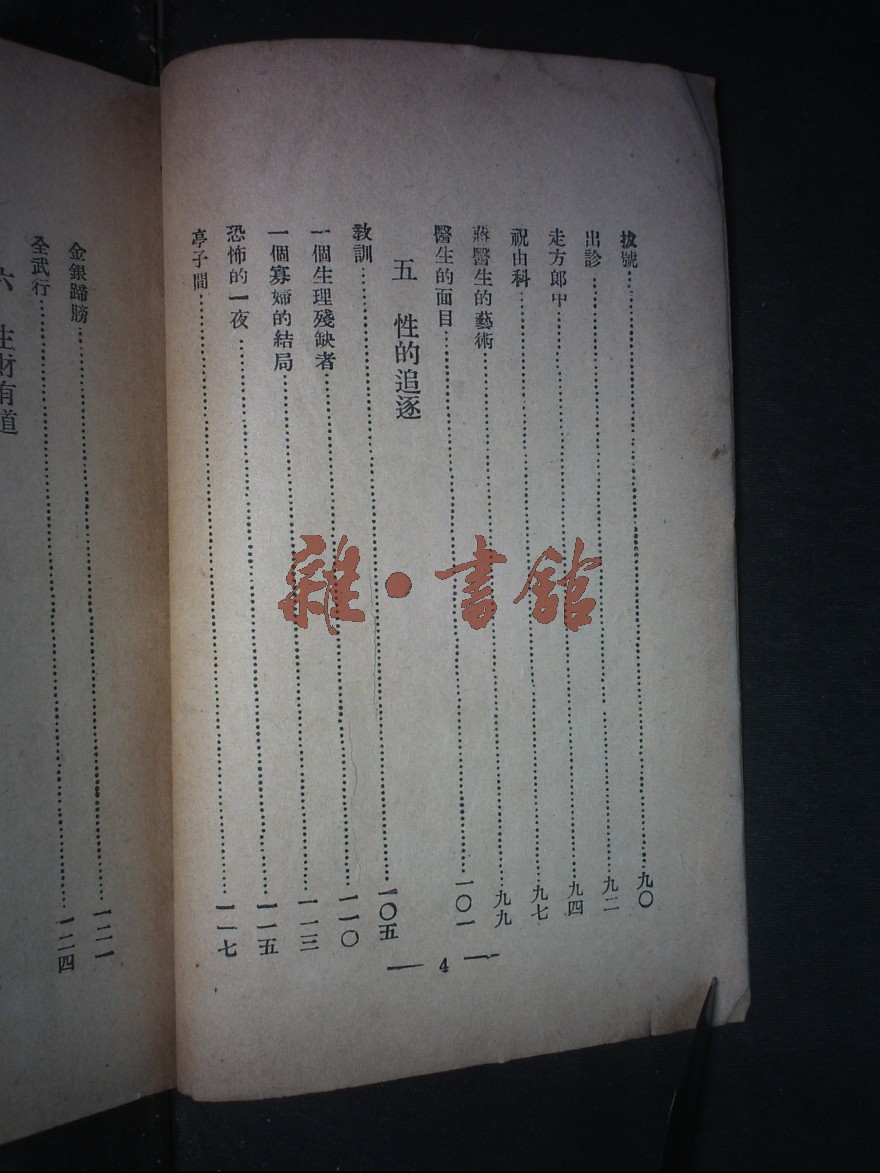 拔號……九〇
出診……九二
走方郎中……九四
祝由科……九七
蔣醫生的藝術……九九
醫生的面目……一〇一
五　性的追逐
教訓……一〇五
一個生理殘缺者……一一〇
一個寡婦的結局……一一三
恐怖的一夜……一一五
亭子間……一一七
— 4 —
金銀蹄膀……一二一
全武行……一二四
六　生財有道
雜·書館